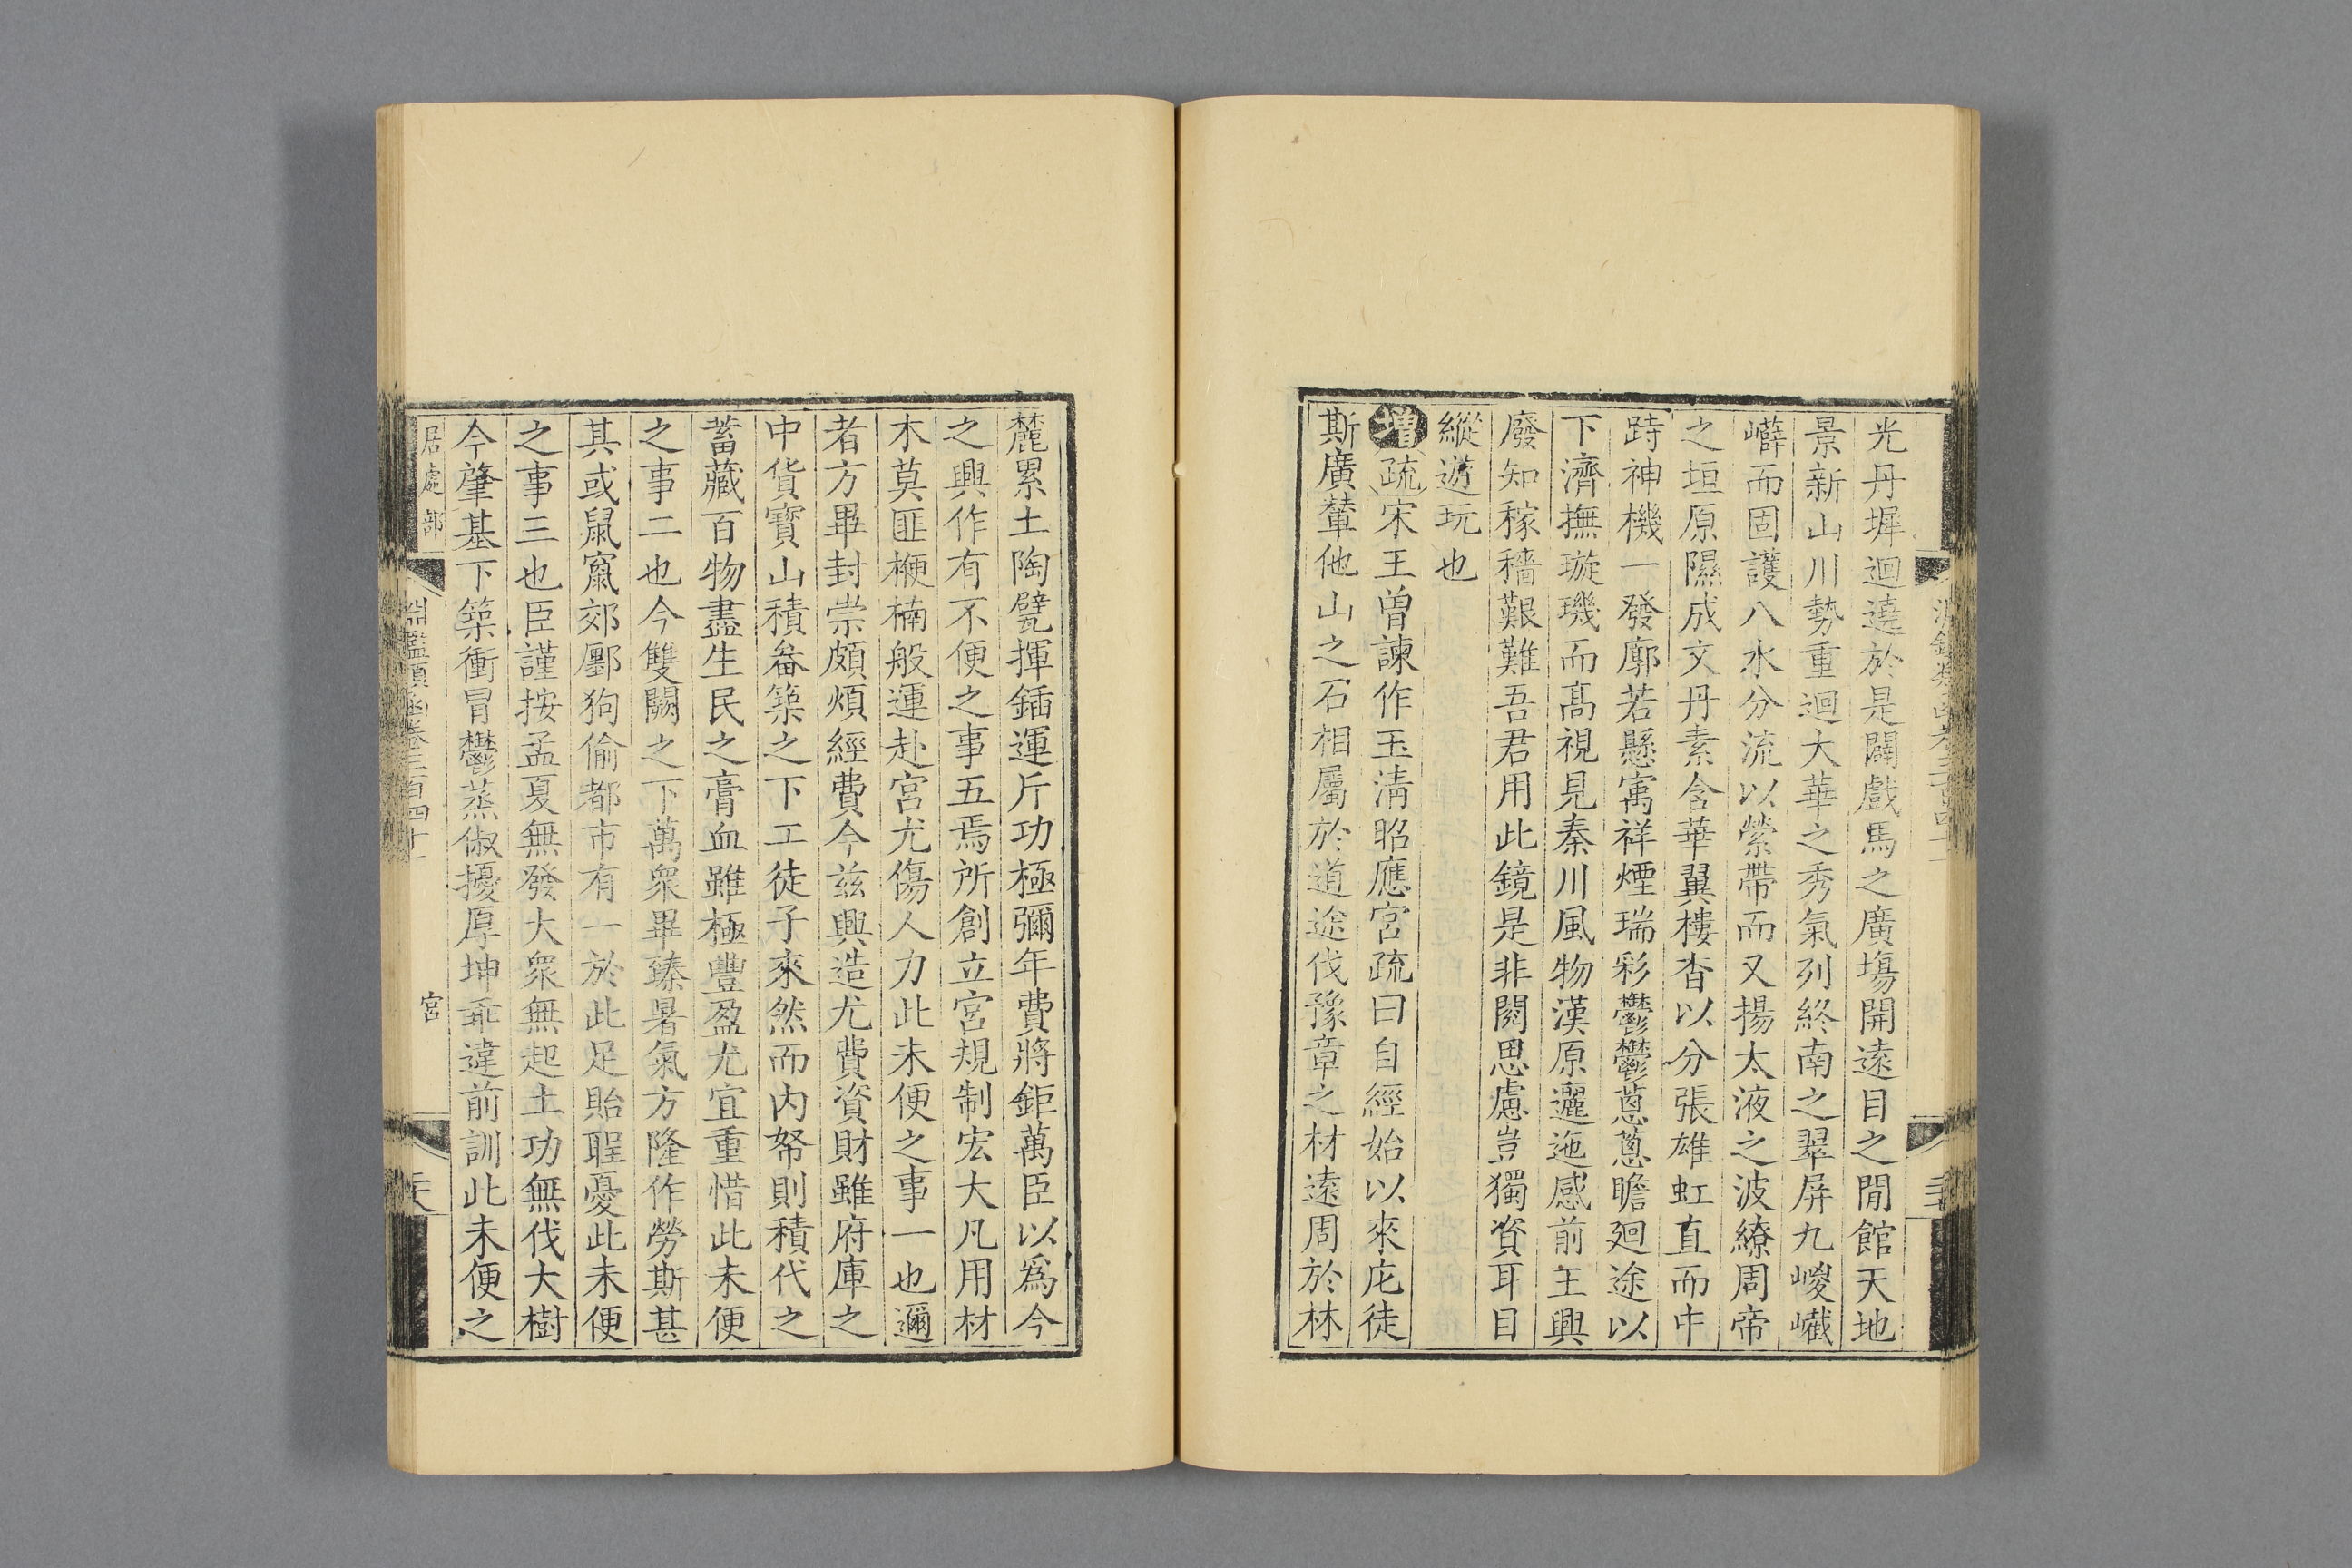 光丹墀迴遶於是闢戲馬之廣塲開遠目之閒館天地
景新山川勢重迴大華之秀氣列終南之翠屏九嵕巀
嶭而固護八水分流以縈帶而又揚太液之波繚周帝
之垣原隰成文丹素含華翼樓杳以分張雄虹直而中
跱神機一發廓若懸寓祥煙瑞彩鬱鬱蔥蔥瞻迴途以
下濟撫璇璣而高視見秦川風物漢原邐迤感前王興
廢知稼穡艱難吾君用此鏡是非閱思慮豈獨資耳目
縱遊玩也
增疏宋王曾諫作玉清昭應宮疏曰自經始以來庀徒
斯廣輦他山之石相屬於道途伐豫章之材遠周於林
麓累土陶甓揮鍤運斤功極彌年費將鉅萬臣以爲今
之興作有不便之事五焉所創立宮規制宏大凡用材
木莫匪楩楠般運赴宮尤傷人力此未便之事一也邇
者方畢封崇頗煩經費今茲興造尤費資財雖府庫之
中貨寶山積畚築之下工徒子來然而內帑則積代之
蓄藏百物盡生民之膏血雖極豐盈尤宜重惜此未便
之事二也今雙闕之下萬衆畢臻暑氣方隆作勞斯甚
其或鼠竄郊鄽狗偷都市有一於此足貽聖憂此未便
之事三也臣謹按孟夏無發大衆無起土功無伐大樹
今肇基下築衝冒鬱蒸俶擾厚坤乖違前訓此未便之
居處部 淵鑑類函卷三百四十一 宮